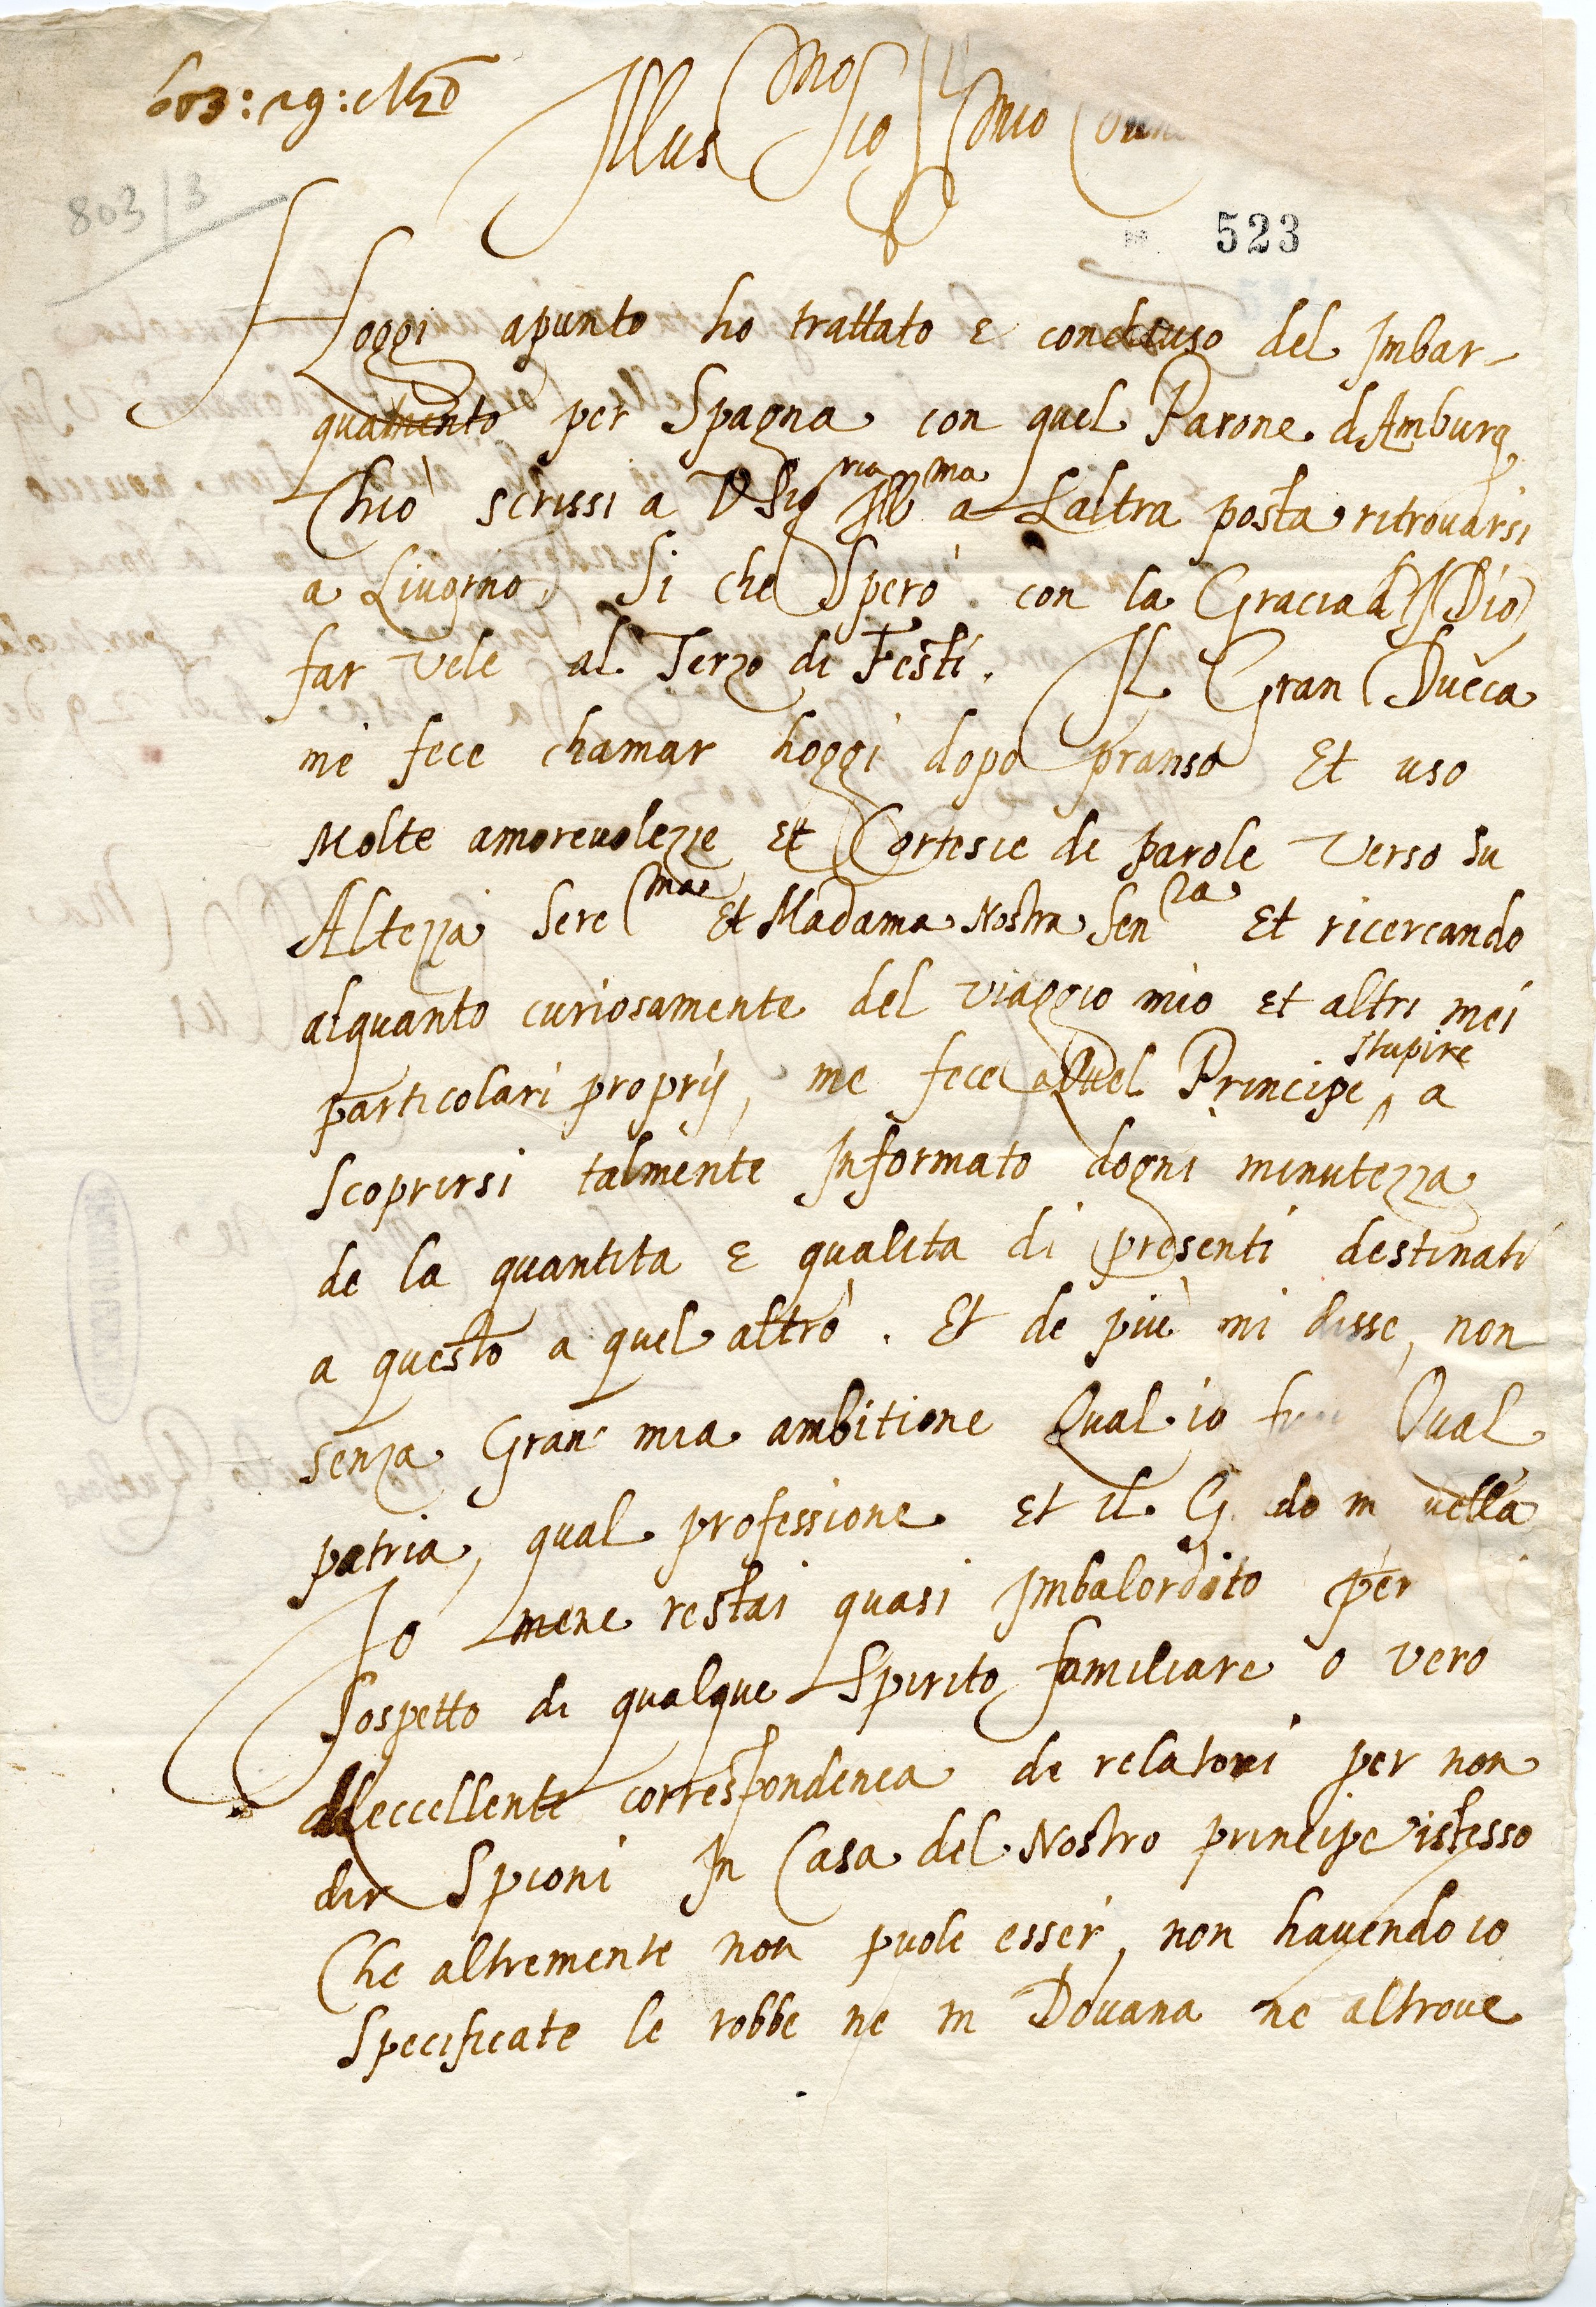 603: 29: Mzo
Illus mo Sigr mio
803/3
523
Hoggi apunto ho trattato e concluso del Imbar-
quamento per Spagna con quel Parone d'Amburg
Chió scrissi a V Sig ria Ill ma a Laltra posta ritrovarsi
a Livorno, Si che Speró con la Gracia d Dio,
far vele al Terzo di Festi. Il Gran Duca
mi fece chamar hoggi dopo pranso Et uso
Molte amorevolezze et Cortesie de parole verso su
Altezza Sere ma Et Madama Nostra Sen ra Et ricercando
alquanto curiosamente del viaggio mio Et altri mei
particolari proprij, me fece quel Principe stupire a
Scoprirsi talmente Informato dogni minutezza
de la quantita e qualita di presenti destinati
a questo a quel altro. Et de più mi disse, non
senza Gran mia ambitione Qual io Qual
patria, qual professione Et il G do in vella
Io mene restai quasi Imbalordito per
Sospetto di qualque Spirito familiare o vero
d'eccellente correspondenca de relatori per non
dir Spioni In Casa del Nostro principe istesso
Che altremente non puole esser, non havendo io
Specificate le robbe ne in Dovana ne altrove